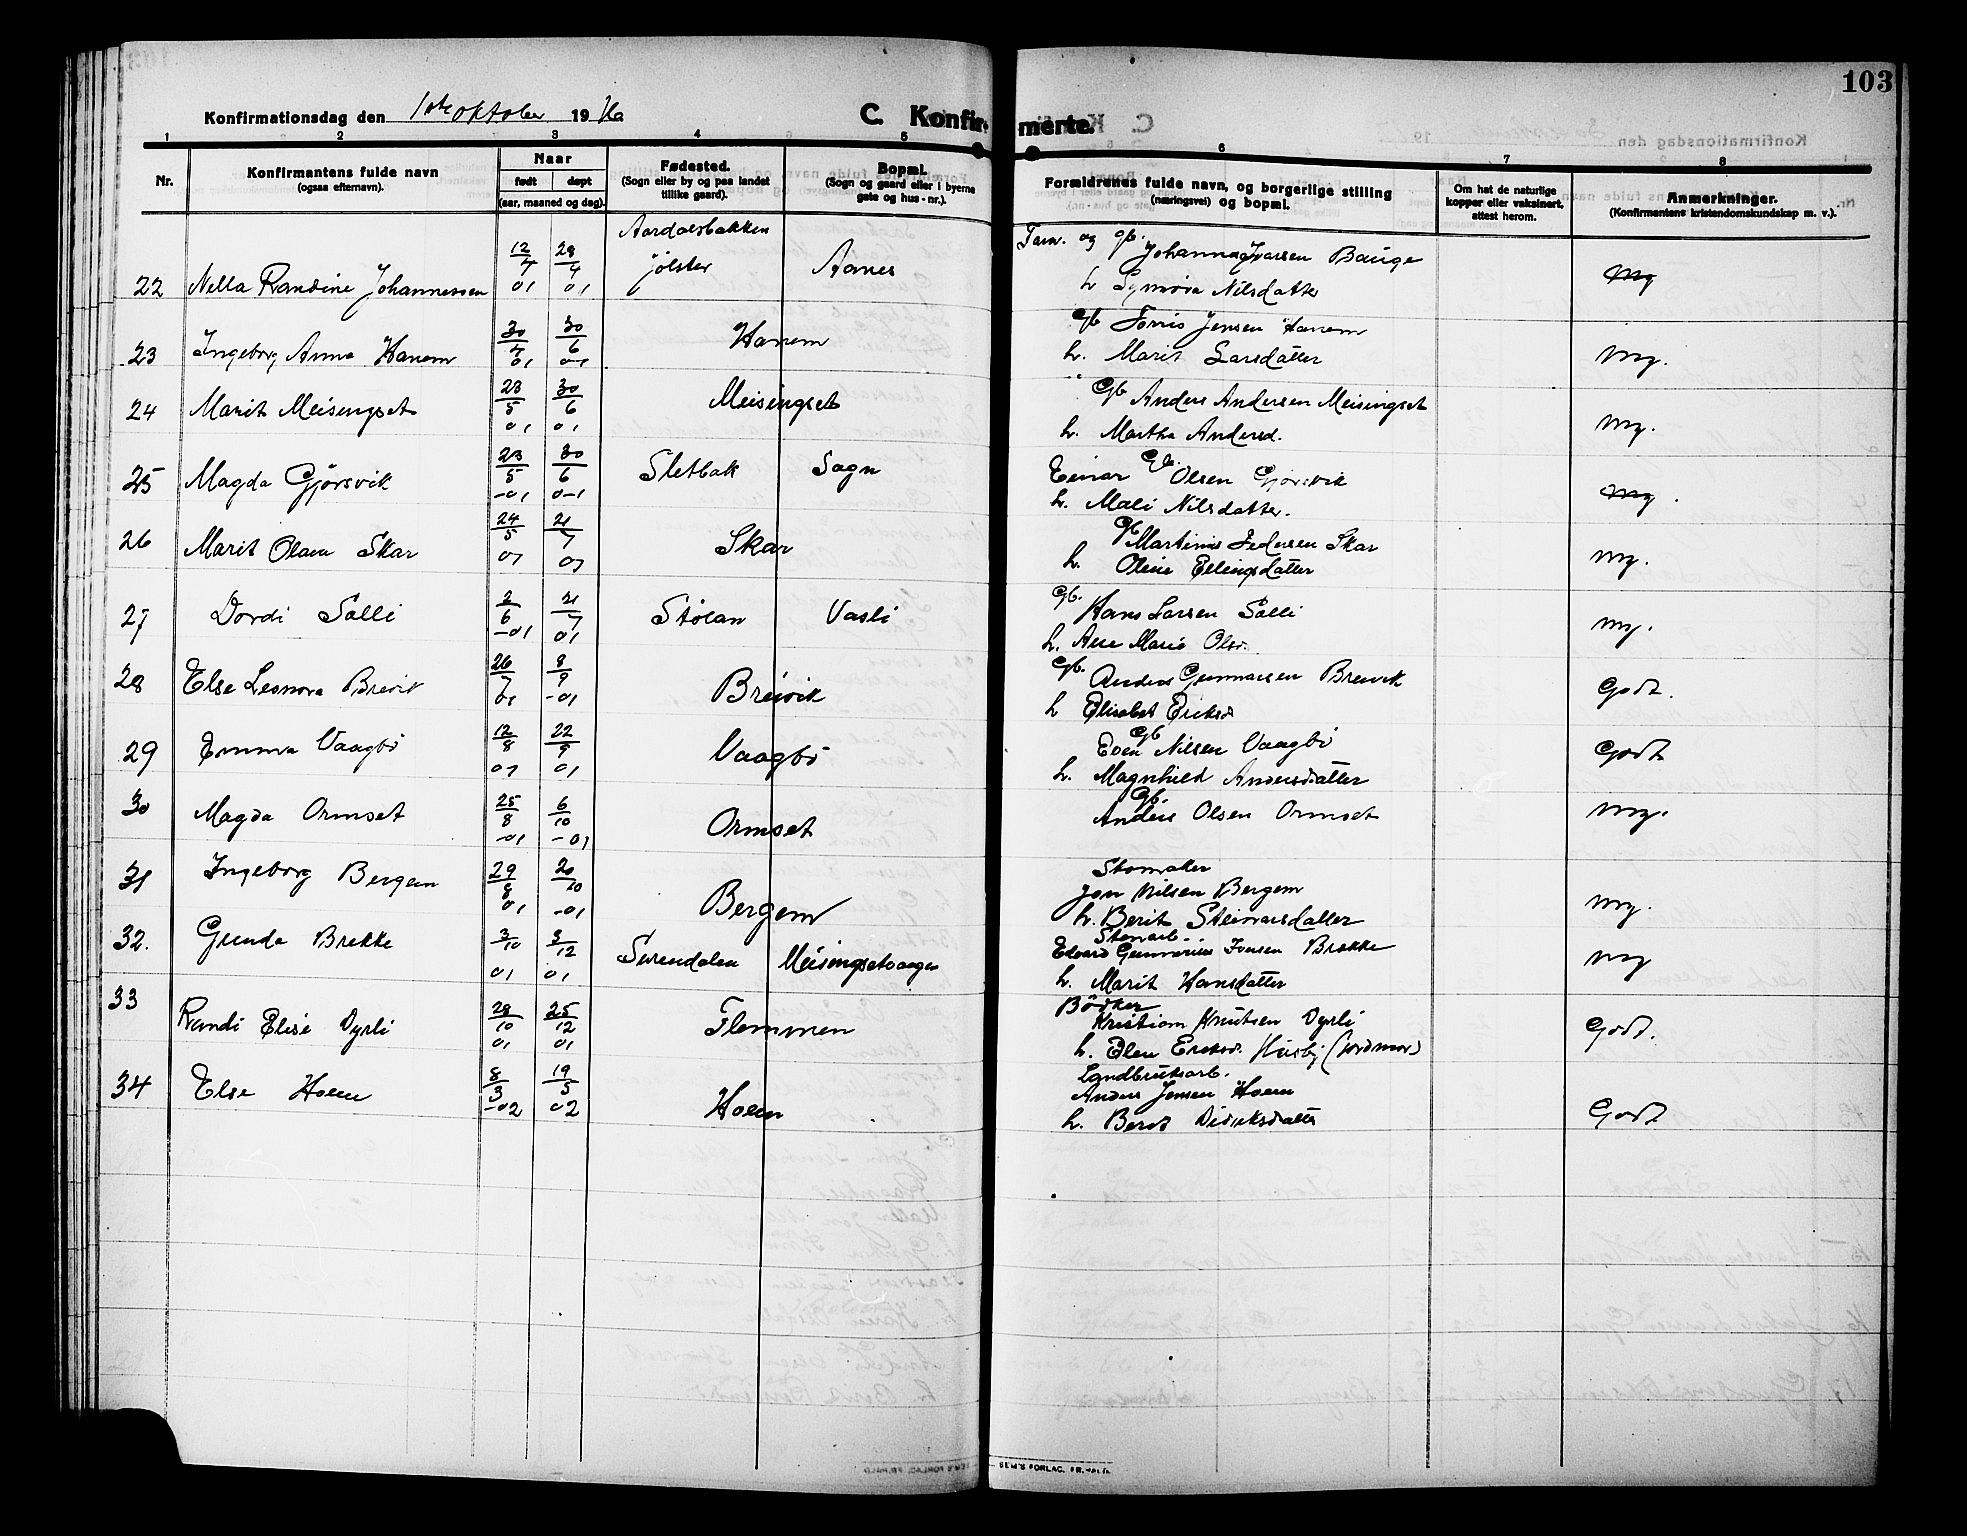 103
Konfirmationsdag den 1ste oktober 1916
C. Konfirmerte.
1 2 3 4 5 6 7 8
Nr.
Konfirmantens fulde navn
(ogsaa efternavn).
Naar
født døpt
(aar, maaned og dag).
Fødested.
(Sogn eller by og paa landet
tillike gaard).
Bopæl.
(Sogn og gaard eller i byerne
gate og hus-nr.).
Forældrenes fulde navn, og borgerlige stilling
(næringsvei) og bopæl.
Om hat de naturlige
kopper eller vaksinert,
attest herom.
Anmerkninger.
(Konfirmantens kristendomskundskap m. v.).
22 Nella Randine Johannessen 12/4 01 28/4 01 Aardalsbakken Jølster Aanes
og gb. Johannes Ivarsen Bauge
h. Synnøva Nilsdatter
mg
23 Ingeborg Anna Hanem 30/4 01 30/6 01 Hanem
gb Tørris Jensen Hanem
h. Marit Larsdatter
mg.
24 Marit Meisingset 23/5 01 30/6 01 Meisingset
Gb Anders Andersen Meisingset
h. Martha Andersd.
mg.
25 Magda Gjørsvik 23/5 -01 30/6 01 Sletbak Sogn
Gb. Einar Olsen Gjørsvik
h. Mali Nilsdatter.
mg.
26 Marit Olava Skar 24/5 01 21/7 01 Skar
Gb Martinus Pedersen Skar
h. Oline Ellingsdatter
mg.
27 Dordi Solli 2/6 -01 21/7 01 Stølan Vasli
Gb. Hans Larsen Solli
h. Ane Marie Olsd.
mg.
28 Else Leonora Breivik 26/7 01 8/9 -01 Breivik
Gb. Anders Gunnarsen Breivik
h Elisabet Eriksd
Godt.
29 Emma Vaagbø 12/8 01 22/9 01 Vaagbø
Gb Even Nilsen Vaagbø
h. Magnhild Andersdatter
Godt
30 Magda Ormset 25/8 -01 6/10 -01 Ormset
Gb. Anders Olsen Ormset
mg.
31 Ingeborg Bergem 29/8 01 20/10 -01 Bergem
Skomaker
Jon Nilsen Bergem
h. Berit Steinarsdatter
mg.
32. Gunda Brekke 3/10 01 3/12 01 Surendalen Meisingsetvaagen
Stenarb.
Edvard Gunnerius Jonsen Brekke
h. Marit Hansdatter
mg
33 Randi Elise Dyrli 28/10 01 25/12 01 Flemmen
Bødker
Kristian Knutsen Dyrli
h. Elen Eriksd. Husby (Jordmor)
Godt.
34 Else Hoem 8/3 -02 19/5 02 Hoem
Landbruksarb.
Anders Jensen Hoem
h. Berit Didriksdatter
Godt
SEM'S FORLAG, FR.HALD